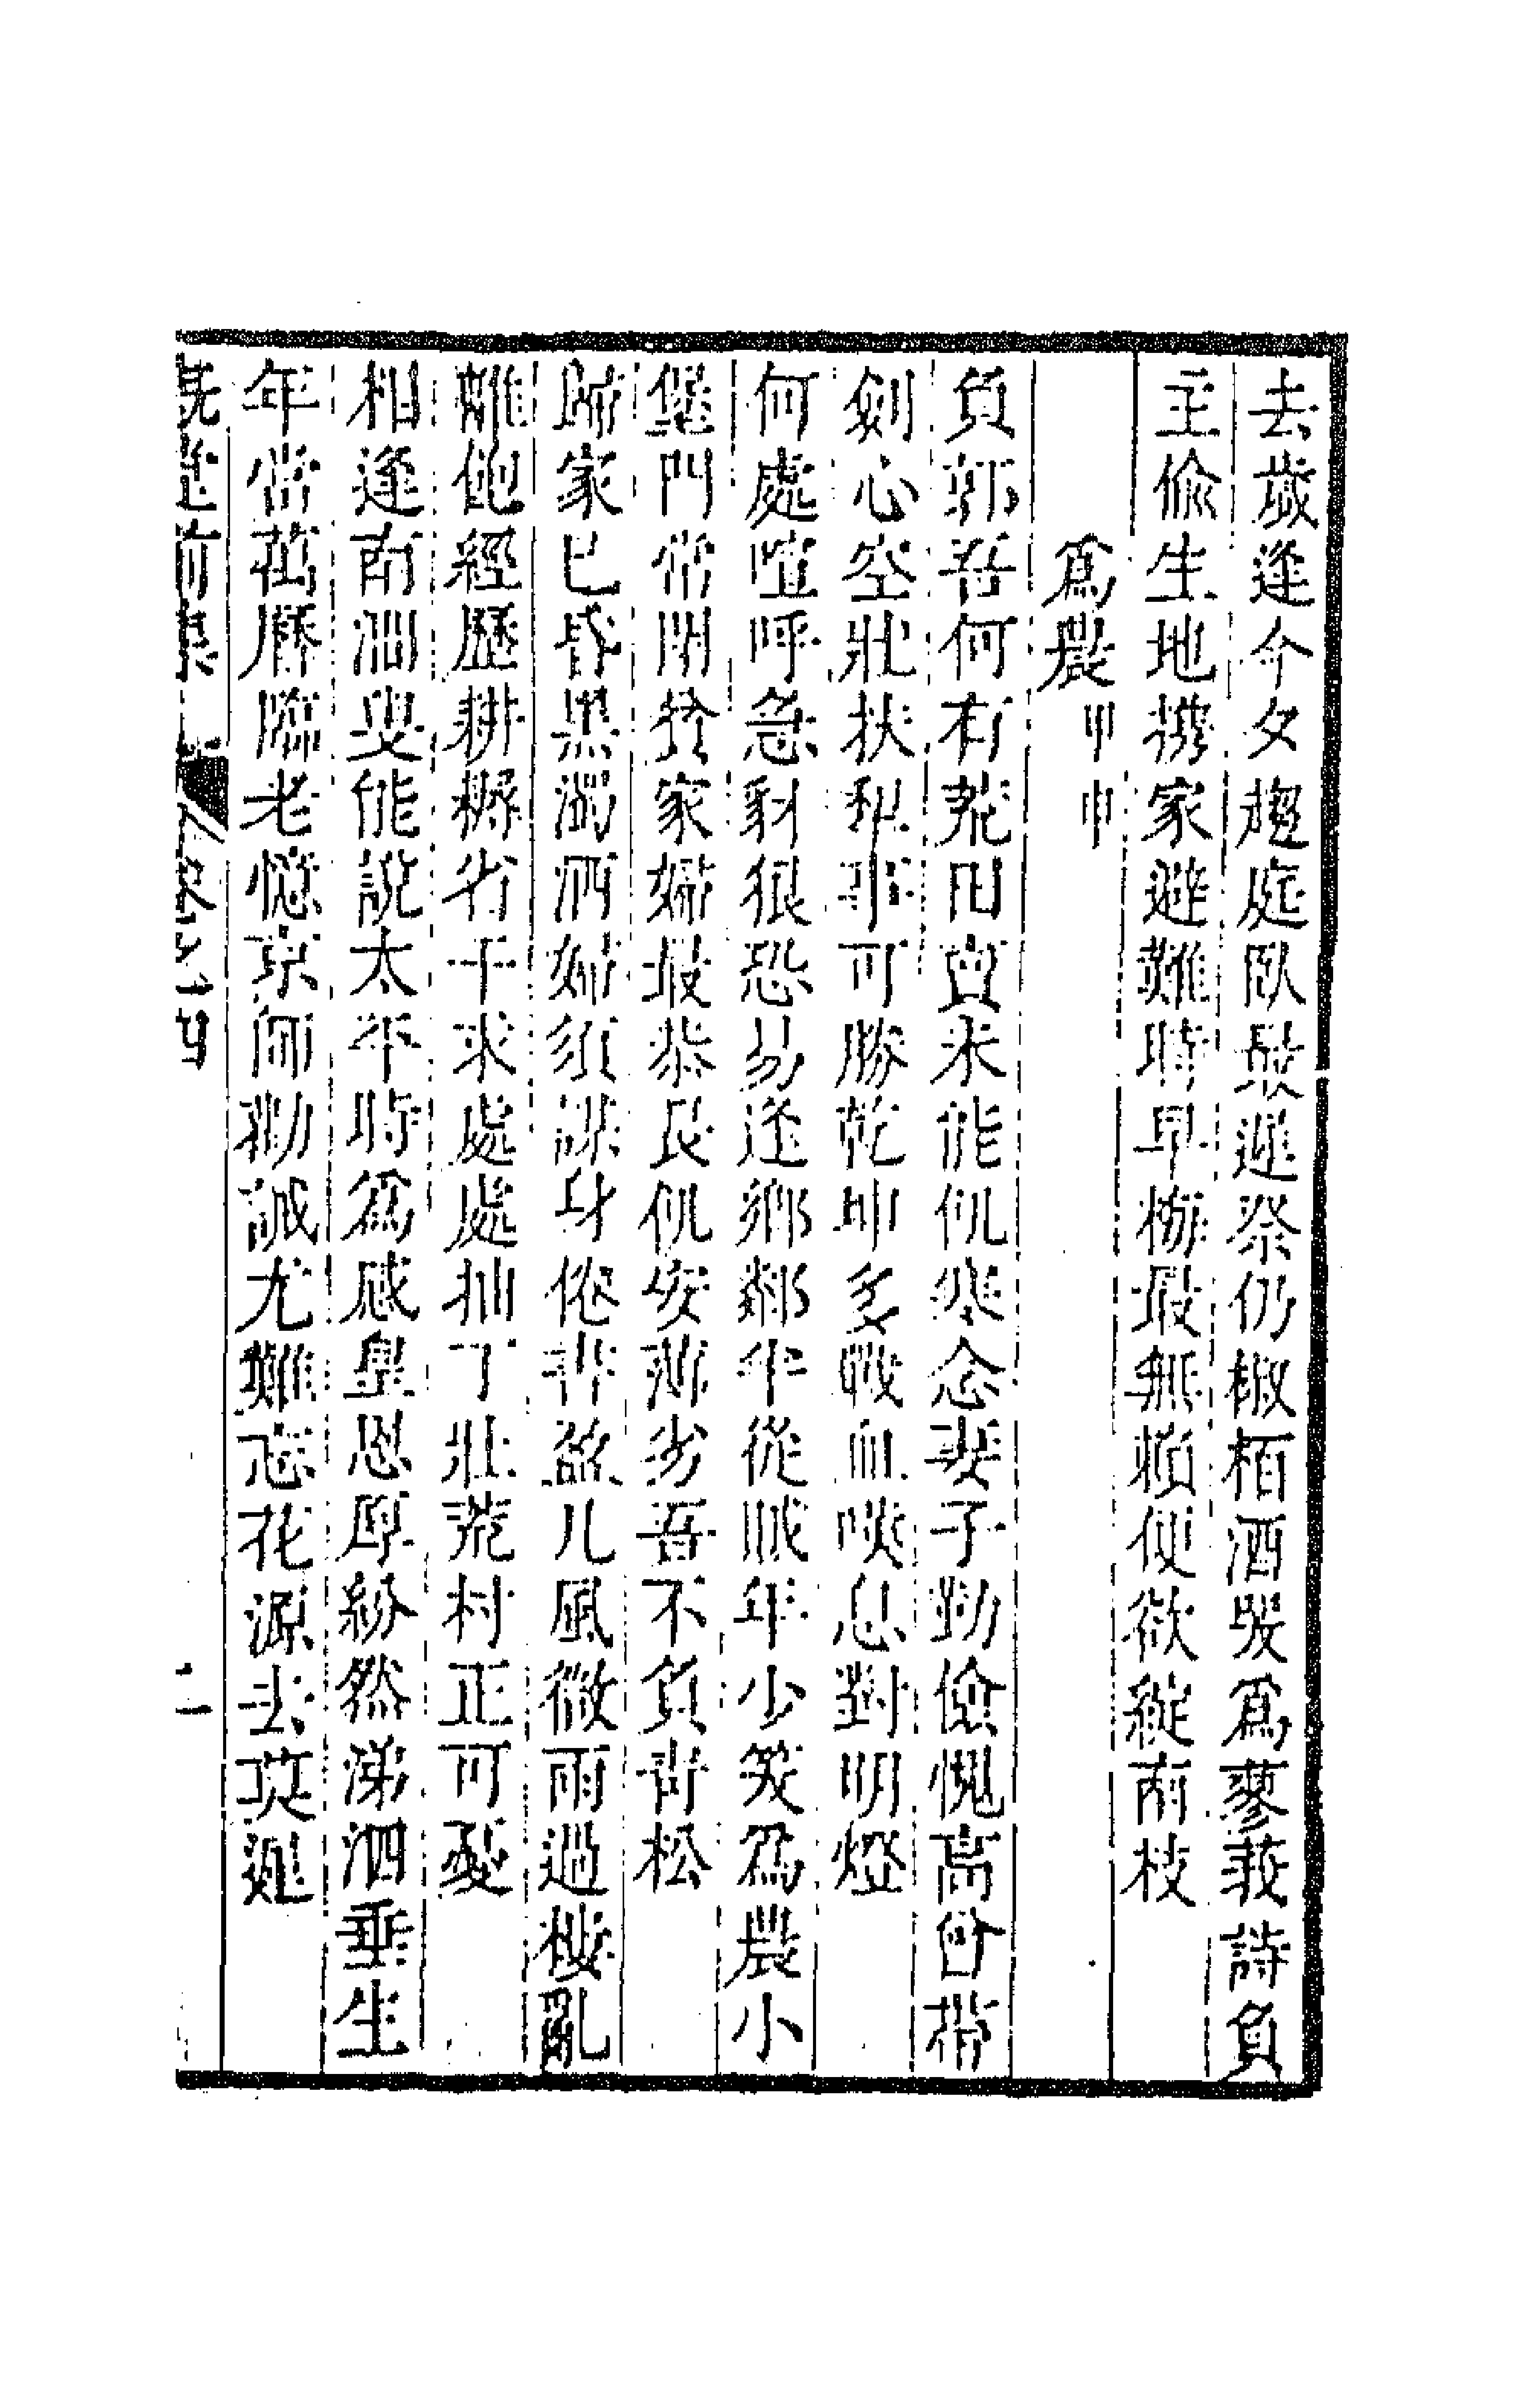 去歲逢今夕趨庭臥最遲祭仍椒栢酒哭爲蓼莪詩負
主偸生地携家避難時早梅最無賴便欲綻南枝
爲農甲申
負郭吾何有荒田實未能飢寒念妻子勤儉愧高曾帶
劍心空壯扶犁事可勝乾坤多戰血嘆息對明燈
何處喧呼急豺狼恐易逢鄉鄰半從賊年少笑爲農小
堡門常閉於家婦最恭長飢安薄劣吾不負青松
歸家已昏黑濁酒婦須謀身倦書盈几風微雨過樓亂
離飽經歷耕耨省干求處處抽丁壯荒村正可憂
相逢南澗叟能說太平時爲感皇恩厚紛然涕泗垂生
年當萬曆臨老憶京師勸誡尤難忘花源去莫遲
卷之四 二